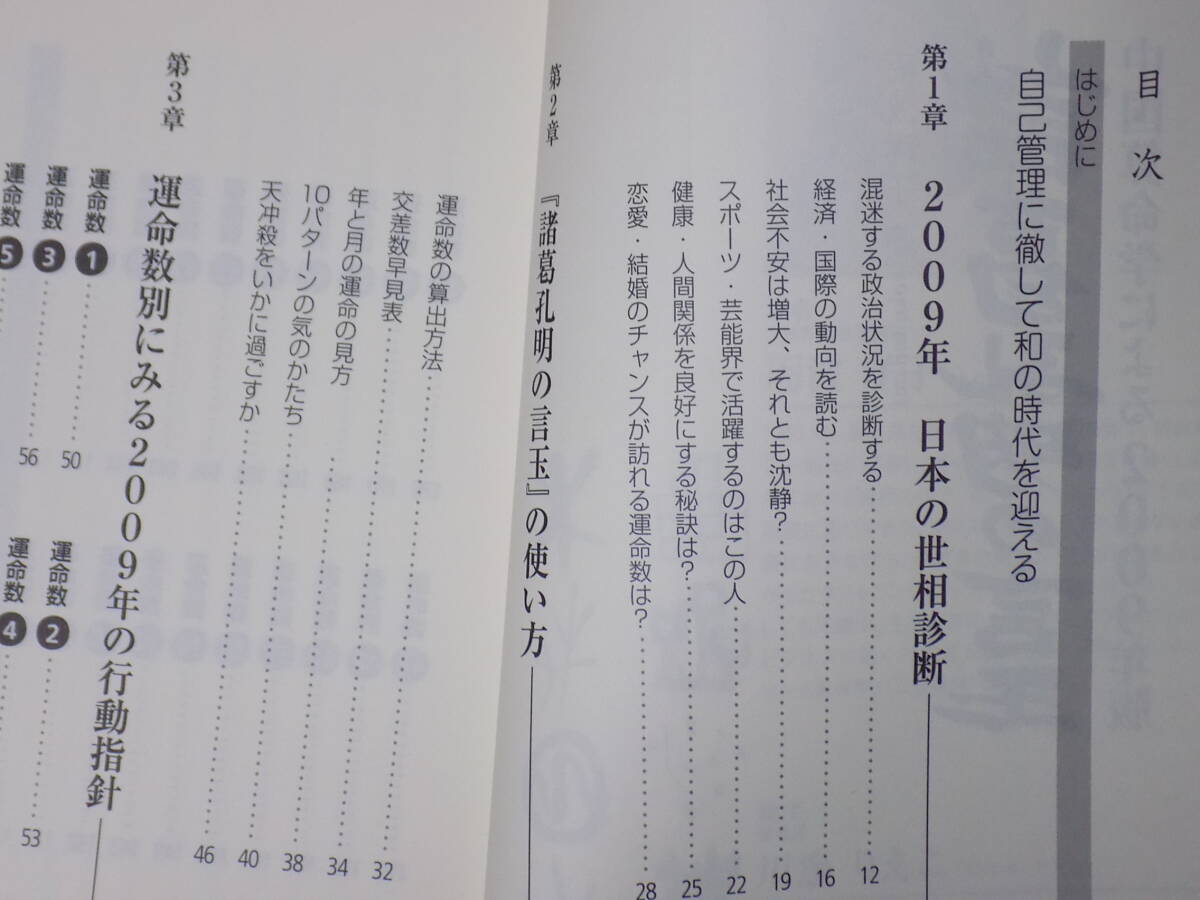 目次
はじめに
自己管理に徹して和の時代を迎える
第1章 2009年 日本の世相診断
混迷する政治状況を診断する……12
経済・国際の動向を読む……16
社会不安は増大、それとも沈静?……19
スポーツ・芸能界で活躍するのはこの人……22
健康・人間関係を良好にする秘訣は?……25
恋愛・結婚のチャンスが訪れる運命数は?……28
第2章 『諸葛孔明の言玉』の使い方
運命数の算出方法……32
交差数早見表……34
年と月の運命の見方……38
10パターンの気のかたち……40
天冲殺をいかに過ごすか……46
第3章 運命数別にみる2009年の行動指針
運命数❶……50
運命数❷……53
運命数❸……56
運命数❹
運命数❺